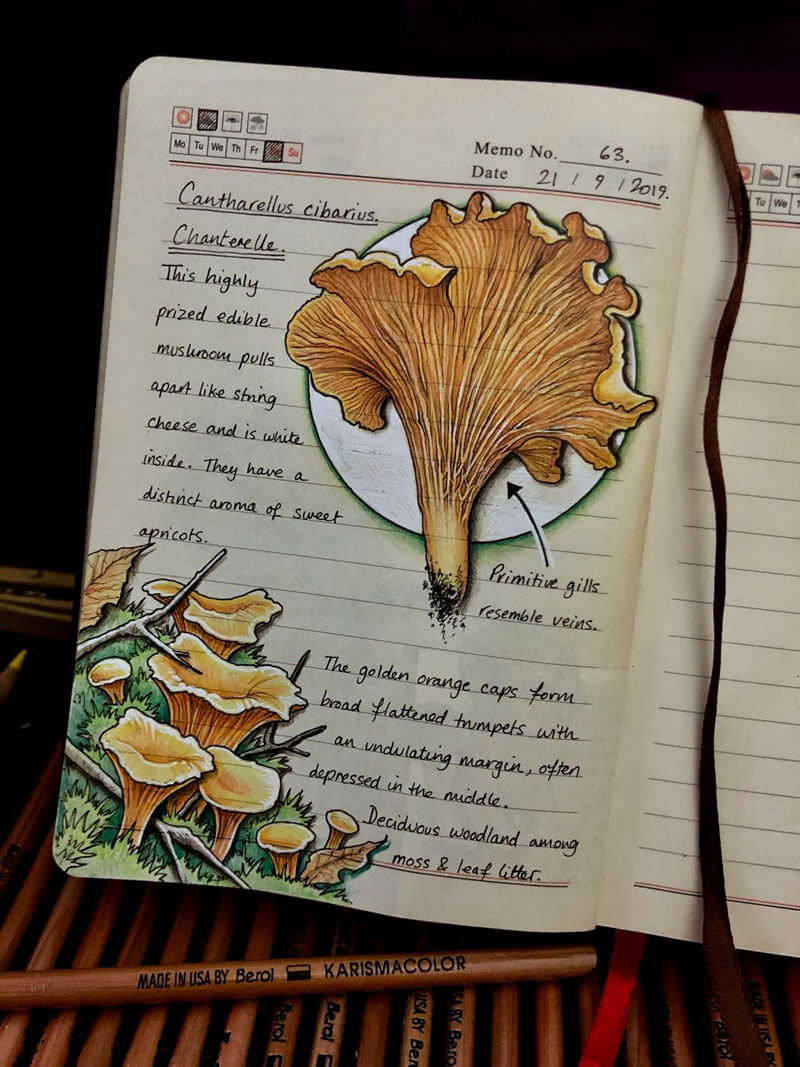 Mo Tu We Th Fr Su
Memo No. 63.
Date 21 / 9 / 2019.
Cantharellus cibarius.
Chanterelle.
This highly
prized edible
mushroom pulls
apart like string
cheese and is white
inside. They have a
distinct aroma of sweet
apricots.
Primitive gills
resemble veins.
The golden orange caps form
broad flattened trumpets with
an undulating margin, often
depressed in the middle.
Deciduous woodland among
moss & leaf litter.
Tu We
MADE IN USA BY Berol KARISMACOLOR
Berol
Berol
USA BY Berol
USA BY Bero
MADE IN USA